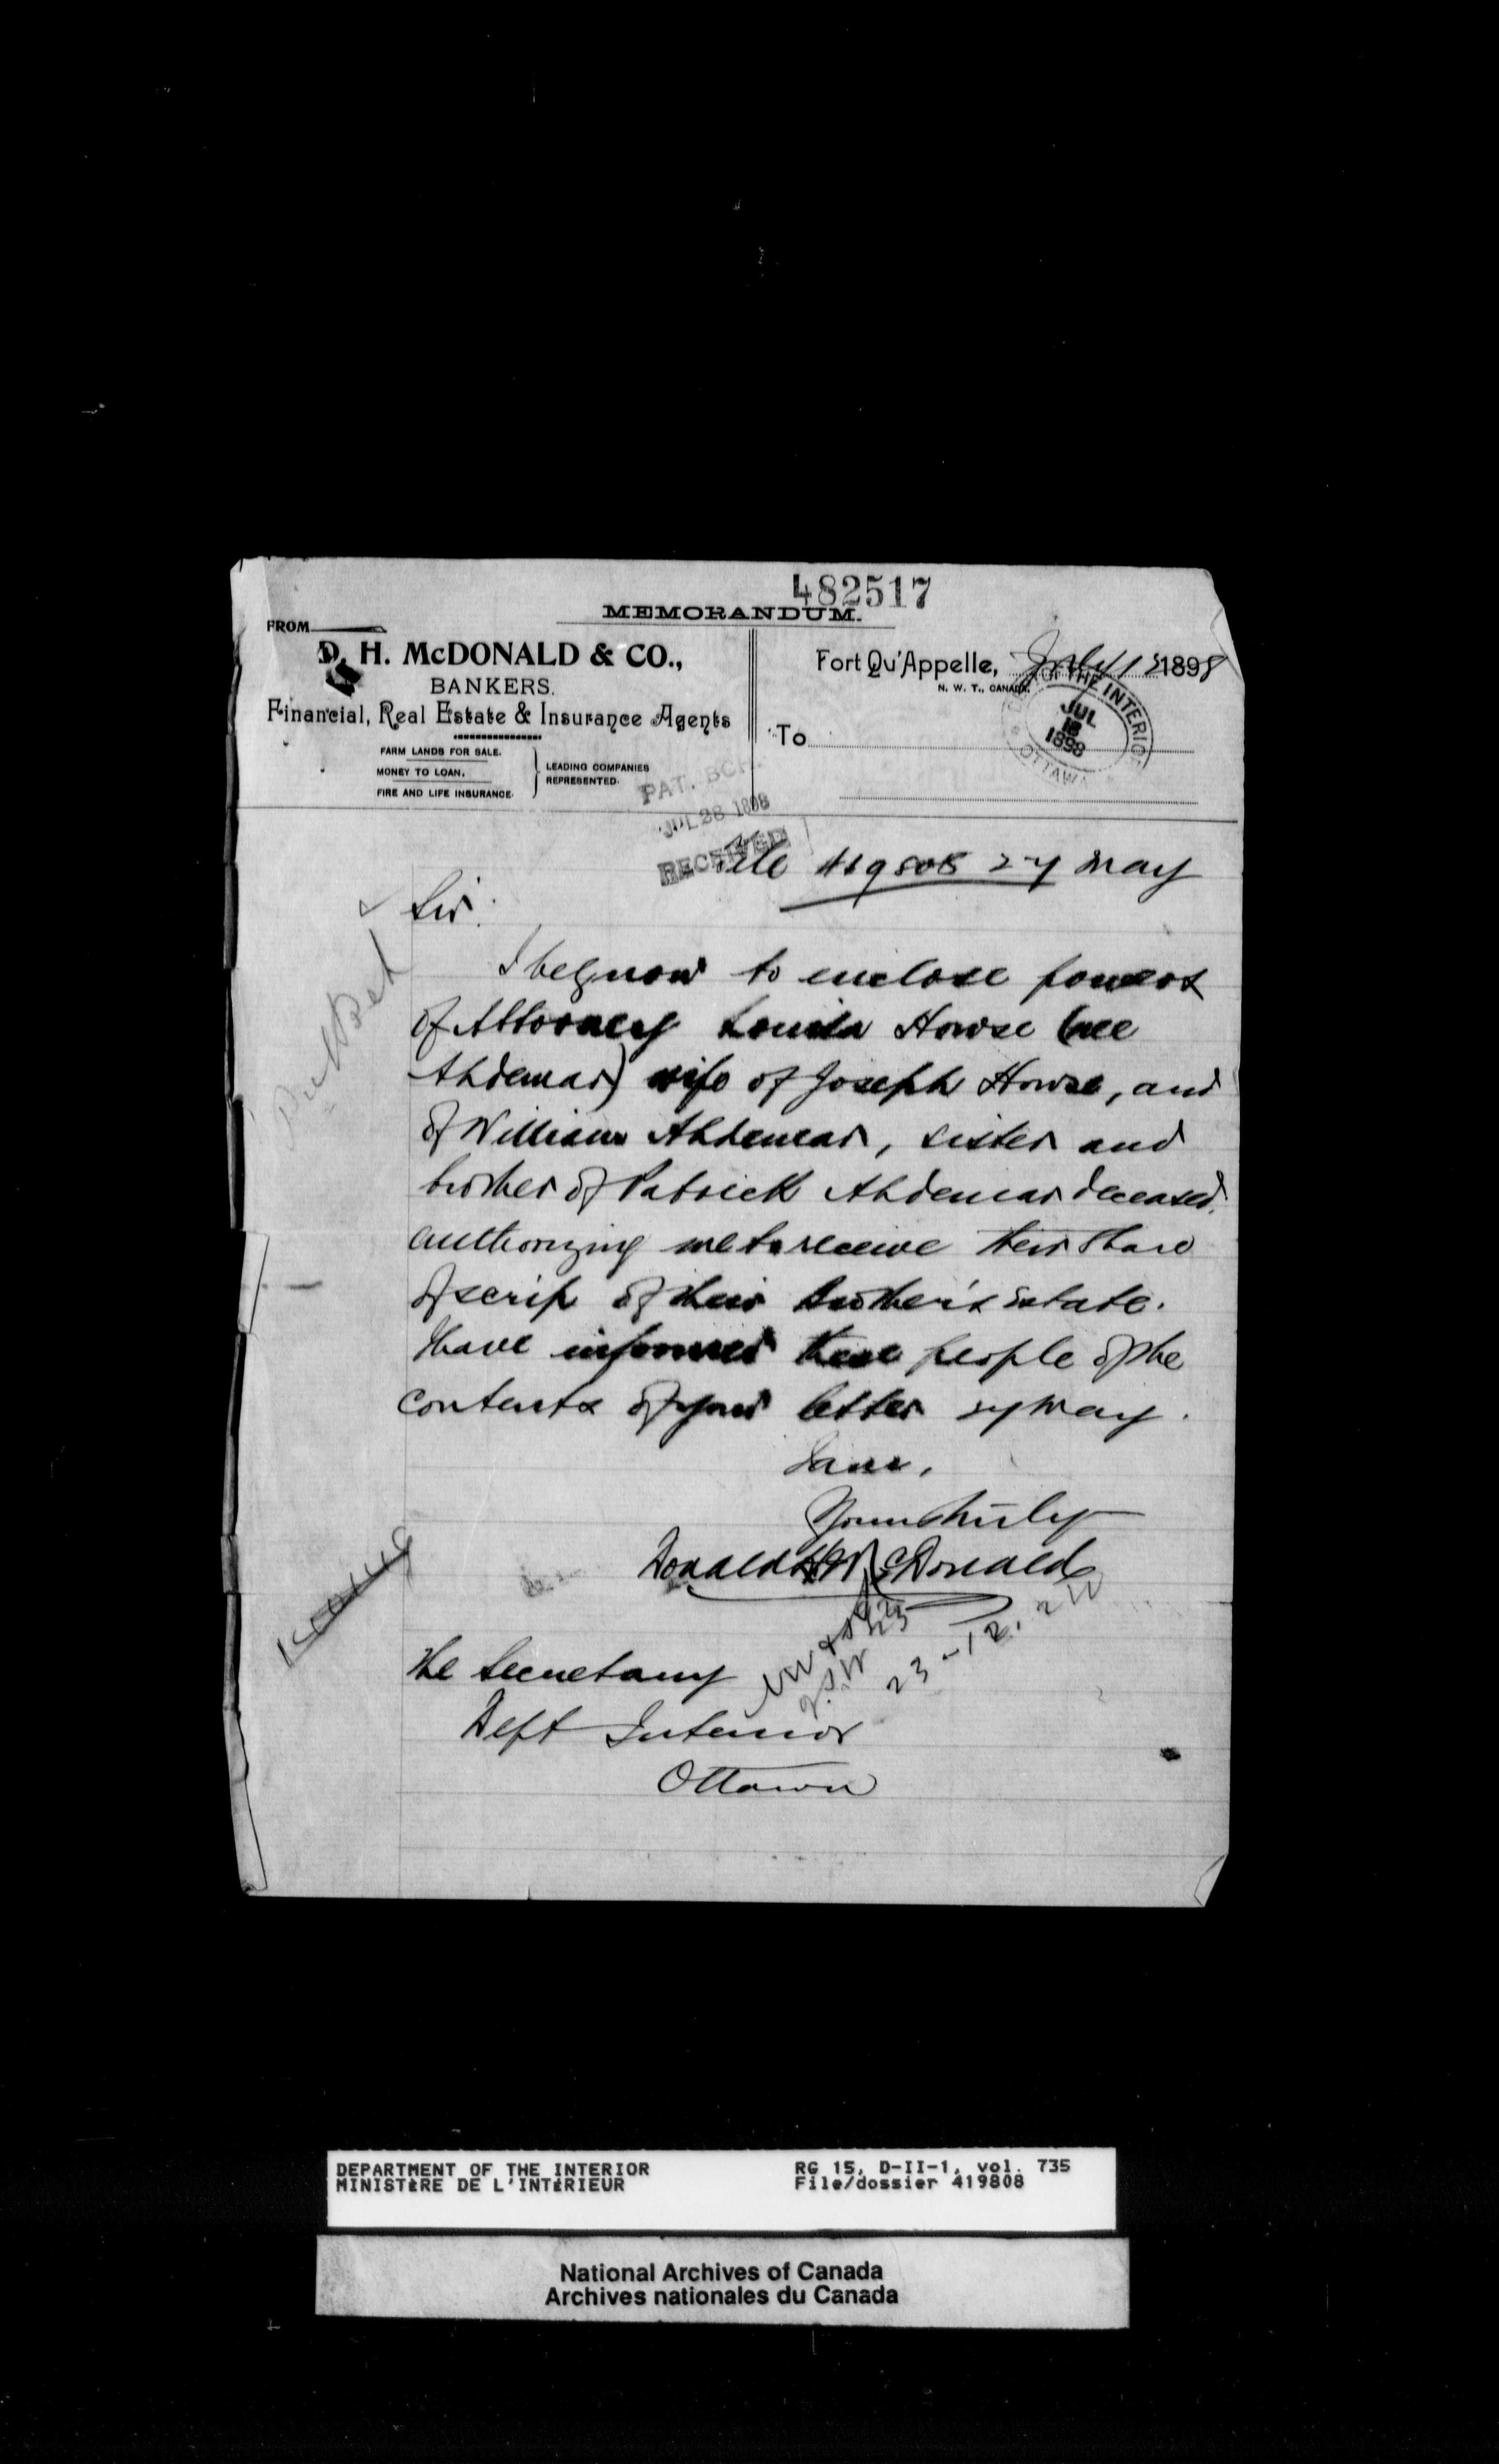 482517
MEMORANDUM.
FROM
D. H. McDONALD & CO.,
BANKERS.
Financial, Real Estate & Insurance Agents
FARM LANDS FOR SALE.
MONEY TO LOAN.
FIRE AND LIFE INSURANCE.
LEADING COMPANIES
REPRESENTED.
Fort Qu'Appelle, July 1898
N. W. T., CANADA.
To
OF THE INTERIOR
JUL
18
1898
OTTAWA
PAT. BCH.
JUL 28 1898
RECEIVED
file 419808 27 May
Sir:
I beg now to enclose powers
of Attorney Louisa Howse (nee
Ahdemar) wife of Joseph Howse, and
of William Ahdemar, sister and
brother of Patrick Ahdemar deceased,
authorizing me to receive their share
of scrip of their brother's Estate.
Have informed these people of the
contents of your letter 27 May.
I am,
Yours truly
Donald H McDonald
23-12.
The Secretary
Dept Interior
Ottawa
DEPARTMENT OF THE INTERIOR
MINISTÈRE DE L'INTÉRIEUR
RG 15, D-II-1, vol. 735
File/dossier 419808
National Archives of Canada
Archives nationales du Canada